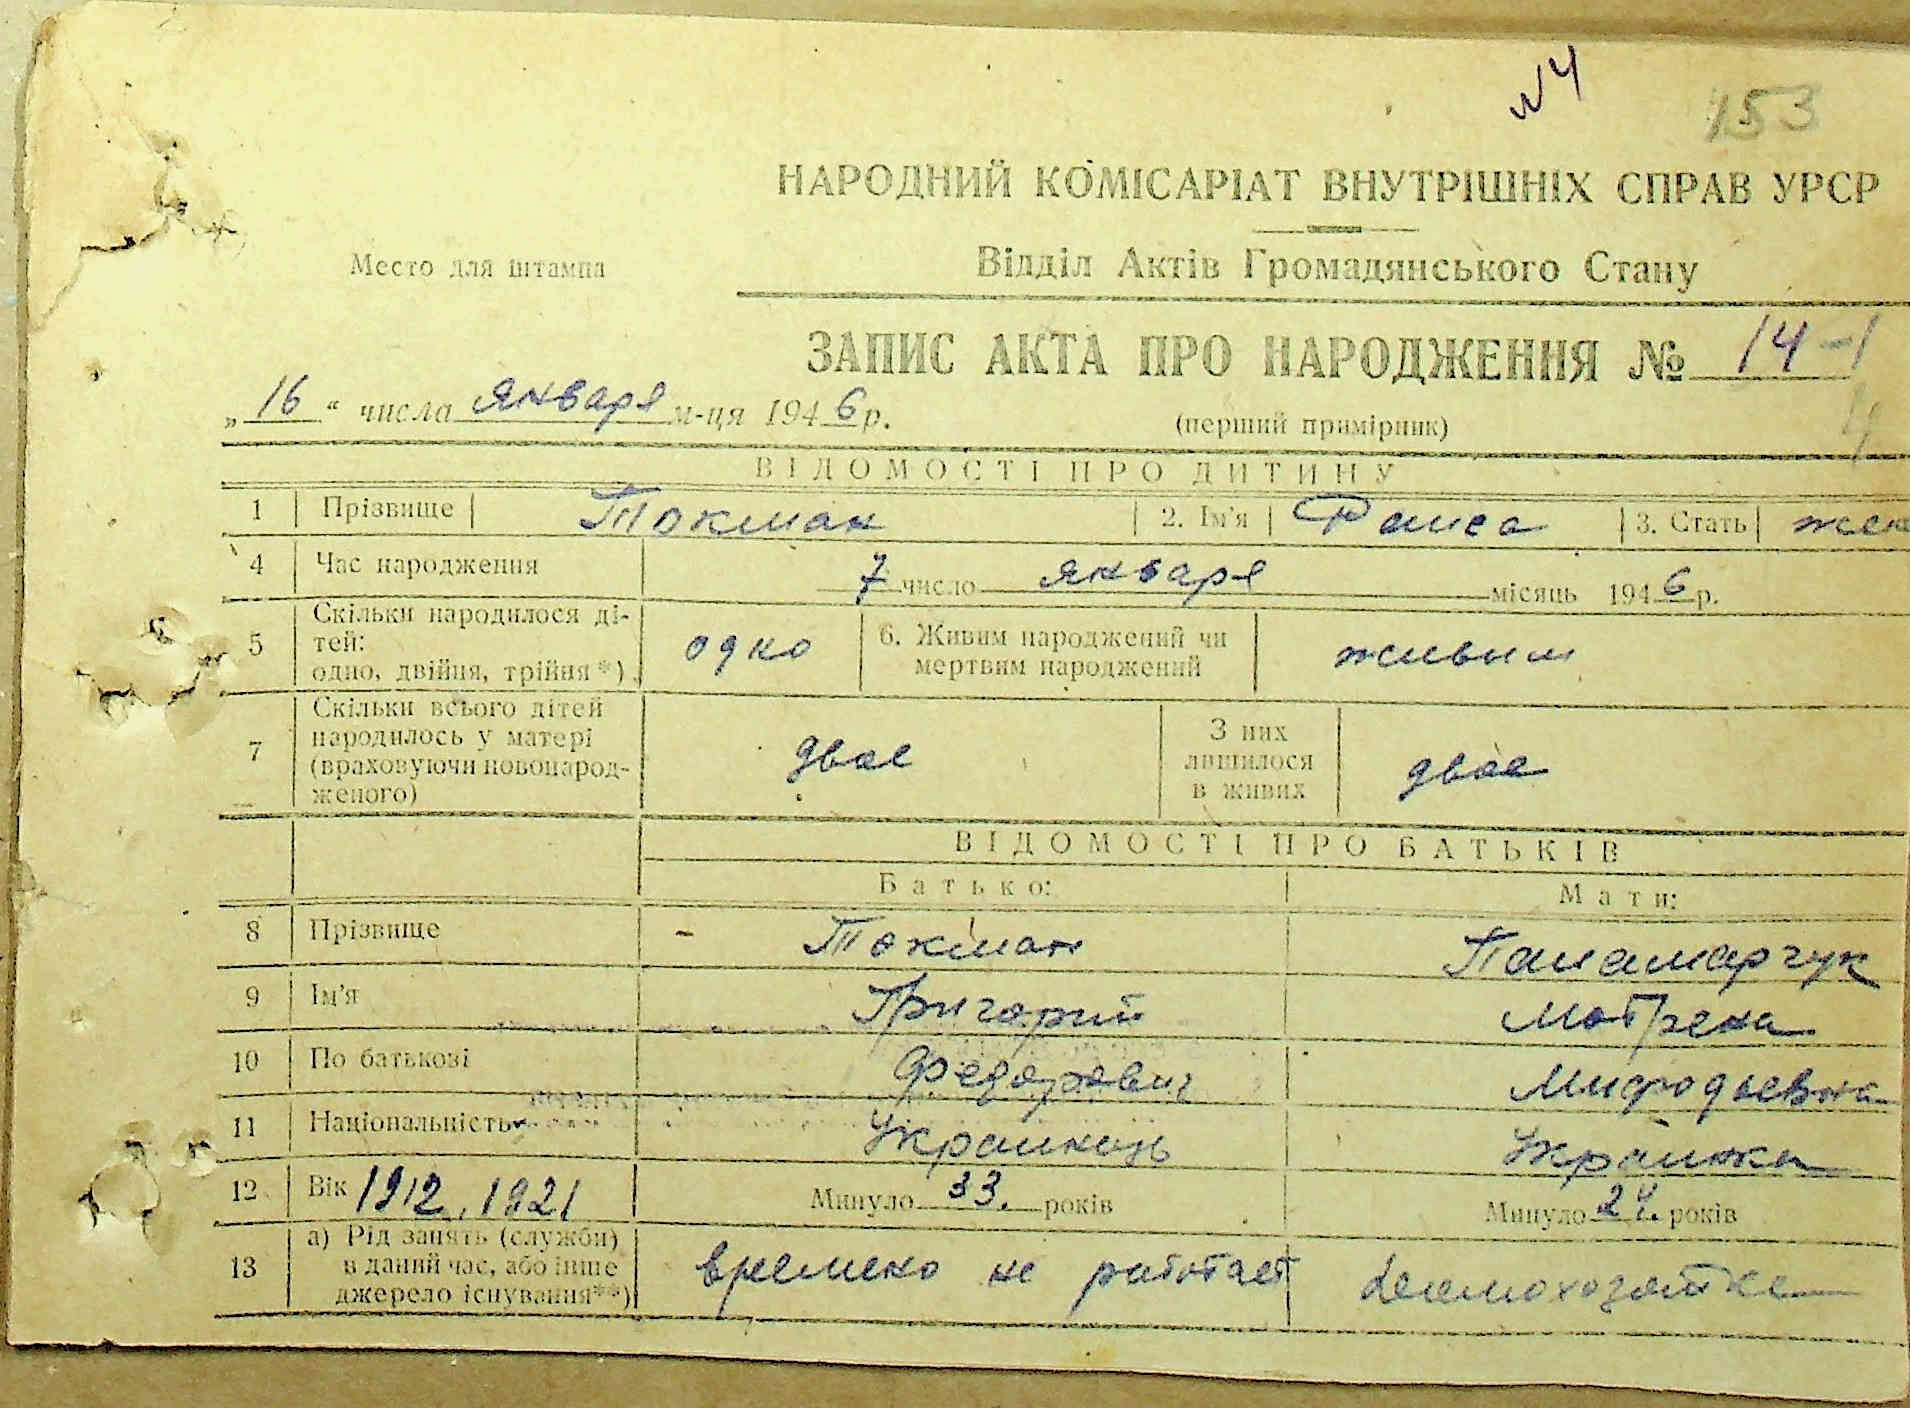 №4
153
НАРОДНИЙ КОМІСАРІАТ ВНУТРІШНІХ СПРАВ УРСР
Место для штампа
Відділ Актів Громадянського Стану
ЗАПИС АКТА ПРО НАРОДЖЕННЯ № 14-1
„16“ числа января м-ця 1946 р.
(перший примірник)
4
ВІДОМОСТІ ПРО ДИТИНУ
1 Прізвище Токман 2. Ім'я Раиса 3. Стать жен
4 Час народження 7 число января місяць 1946 р.
5 Скільки народилося ді-
тей:
одно, двійня, трійня*)
одно
6. Живим народжений чи
мертвим народжений
живым
7 Скільки всього дітей
народилось у матері
(враховуючи новонарод-
женого)
двое
З них
лишилося
в живих
двое
ВІДОМОСТІ ПРО БАТЬКІВ
Батько: Мати:
8 Прізвище Токман Панамарчук
9 Ім'я Григорий Мотрена
10 По батькові Федорович Мифодьевна
11 Національність Украинець Украинка
12 Вік 1912, 1921 Минуло 33. років Минуло 24. років
13 а) Рід занять (служби)
в даний час, або інше
джерело існування**)
времено не работает
домохозяйка